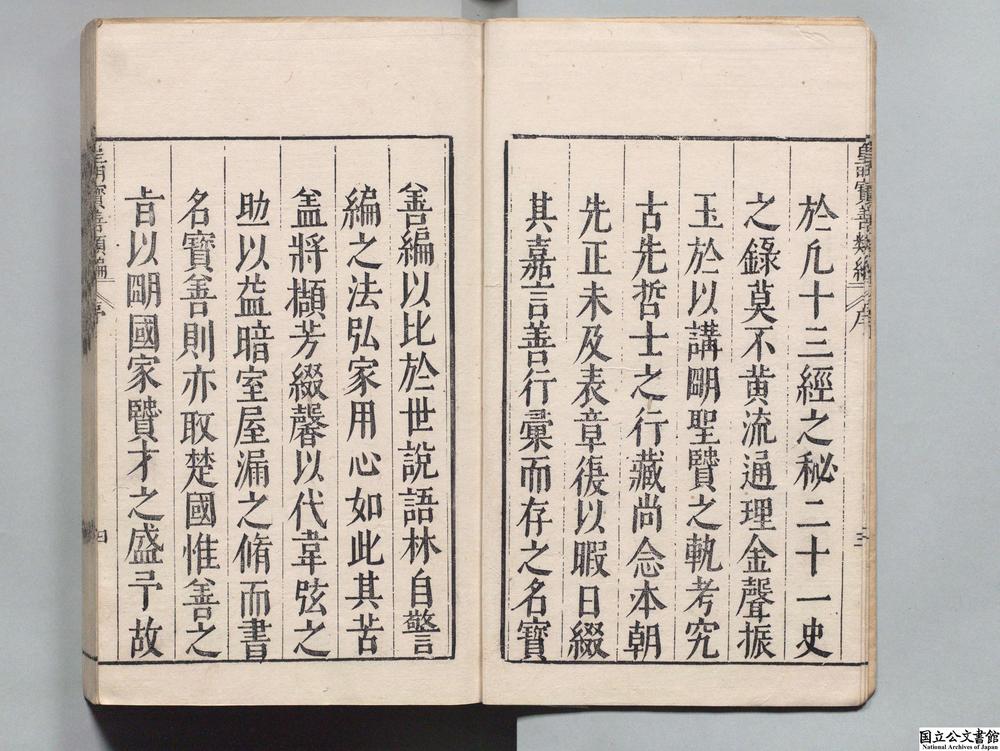 於凡十三經之秘二十一史
之錄莫不黄流通理金聲振
玉於以講朙聖贒之軌考究
古先哲士之行藏尚念本朝
先正未及表章復以暇日綴
其嘉言善行彚而存之名寶
善編以比於世說語林自警
編之法弘家用心如此其苦
盖將擷芳綴馨以代韋弦之
助以益暗室屋漏之脩而書
名寶善則亦取楚國惟善之
旨以朙國家贒才之盛予故
皇明寶善類編
序
三
皇明寶善類編
序
四
国立公文書館
National Archives of Japan